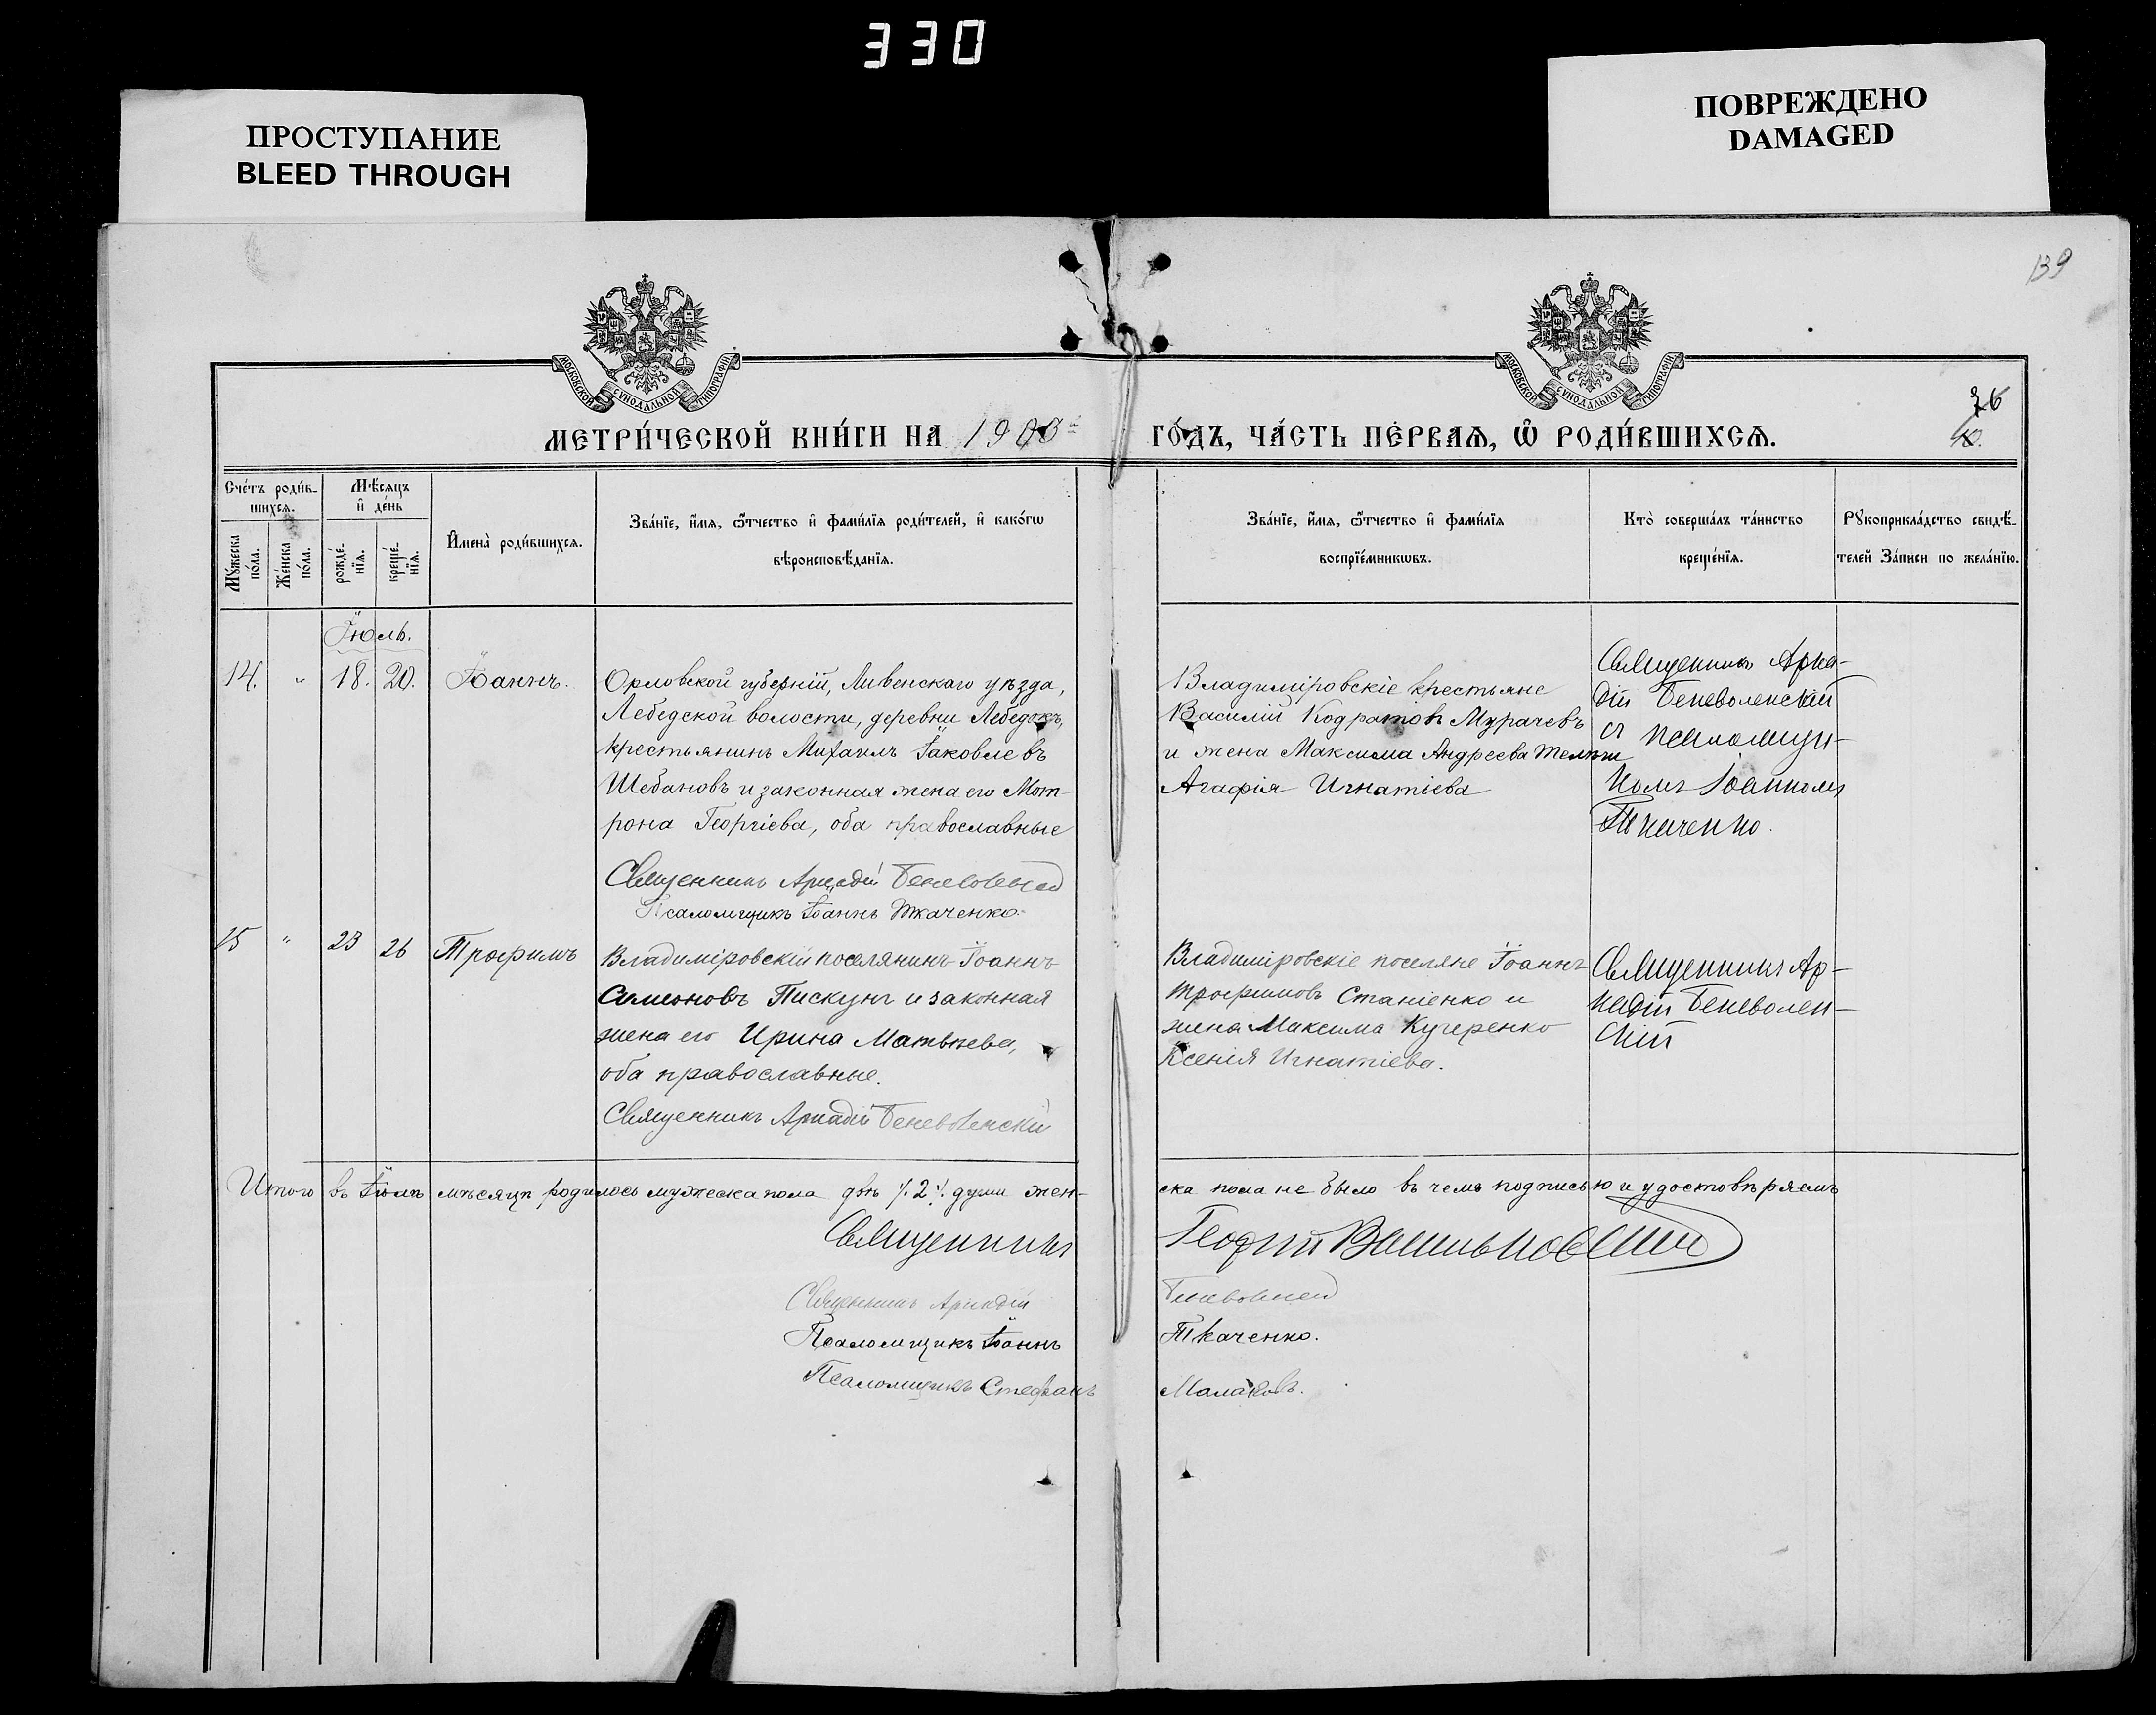 330
ПРОСТУПАНИЕ
BLEED THROUGH
ПОВРЕЖДЕНО
DAMAGED
139
МОСКОВСКОЙ СУНОДАЛЬНОЙ ТИПОГРАФІИ
МОСКОВСКОЙ СУНОДАЛЬНОЙ ТИПОГРАФІИ
36
40.
МЕТРИ́ЧЕСКОЙ КНИ́ГИ НА 1900 ГО́ДЪ, ЧА́СТЬ ПЕ́РВАѦ, Ѡ҆ РОДИ́ВШИХСѦ.
Сче́тъ роди́в-
шихсѧ.
Мꙋ́жеска по́ла.
Же́нска по́ла.
Мѣ́сѧцъ
и҆ де́нь
рожде́-
нїѧ.
креще́-
нїѧ.
И҆мена̀ роди́вшихсѧ.
Зва́нїе, и҆́мѧ, ѻ҆́тчество и҆ фами́лїѧ роди́телей, и҆ како́гѡ
вѣроисповѣ́данїѧ.
Зва́нїе, и҆́мѧ, ѻ҆́тчество и҆ фами́лїѧ
воспрїе́мникѡвъ.
Кто̀ соверша́лъ та́инство
креще́нїѧ.
Рꙋкоприкла́дство свидѣ́-
телей За́писи по жела́нїю.
Іюль.
14. " 18. 20. Іоаннъ.
Орловской губерніи, Ливенскаго уѣзда,
Лебедской волости, деревни Лебедокъ,
крестьянинъ Михаилъ Іаковлевъ
Шебановъ и законная жена его Мот-
рона Георгіева, оба православные
Священникъ Аркадій Беневоленскій
Псаломщикъ Іоаннъ Ткаченко.
Владиміровскіе крестьяне
Василій Кодратовъ Мурачевъ
и жена Максима Андреева
Агафія Игнатіева
Священникъ Арка-
дій Беневоленскій
съ псаломщи-
комъ Іоанномъ
Ткаченко.
15 " 23 26 Трофимъ
Владиміровскій поселянинъ Іоаннъ
Симеоновъ Пискунъ и законная
жена его Ирина Матвѣева,
оба православные.
Священникъ Аркадій Беневоленскій
Владиміровскіе поселяне Іоаннъ
Трофимовъ Станіенко и
жена Максима Кучеренко
Ксенія Игнатіева.
Священникъ Ар-
кадій Беневолен-
скій
Итого въ Іюлѣ мѣсяцѣ родилось мужеска пола двѣ /.2./ души жен-
ска пола не было въ чемъ подписью и удостовѣряемъ
Священникъ Георгій Васильковскій
Священникъ Аркадій Беневоленскій
Псаломщикъ Іоаннъ Ткаченко.
Псаломщикъ Стефанъ Малаховъ.